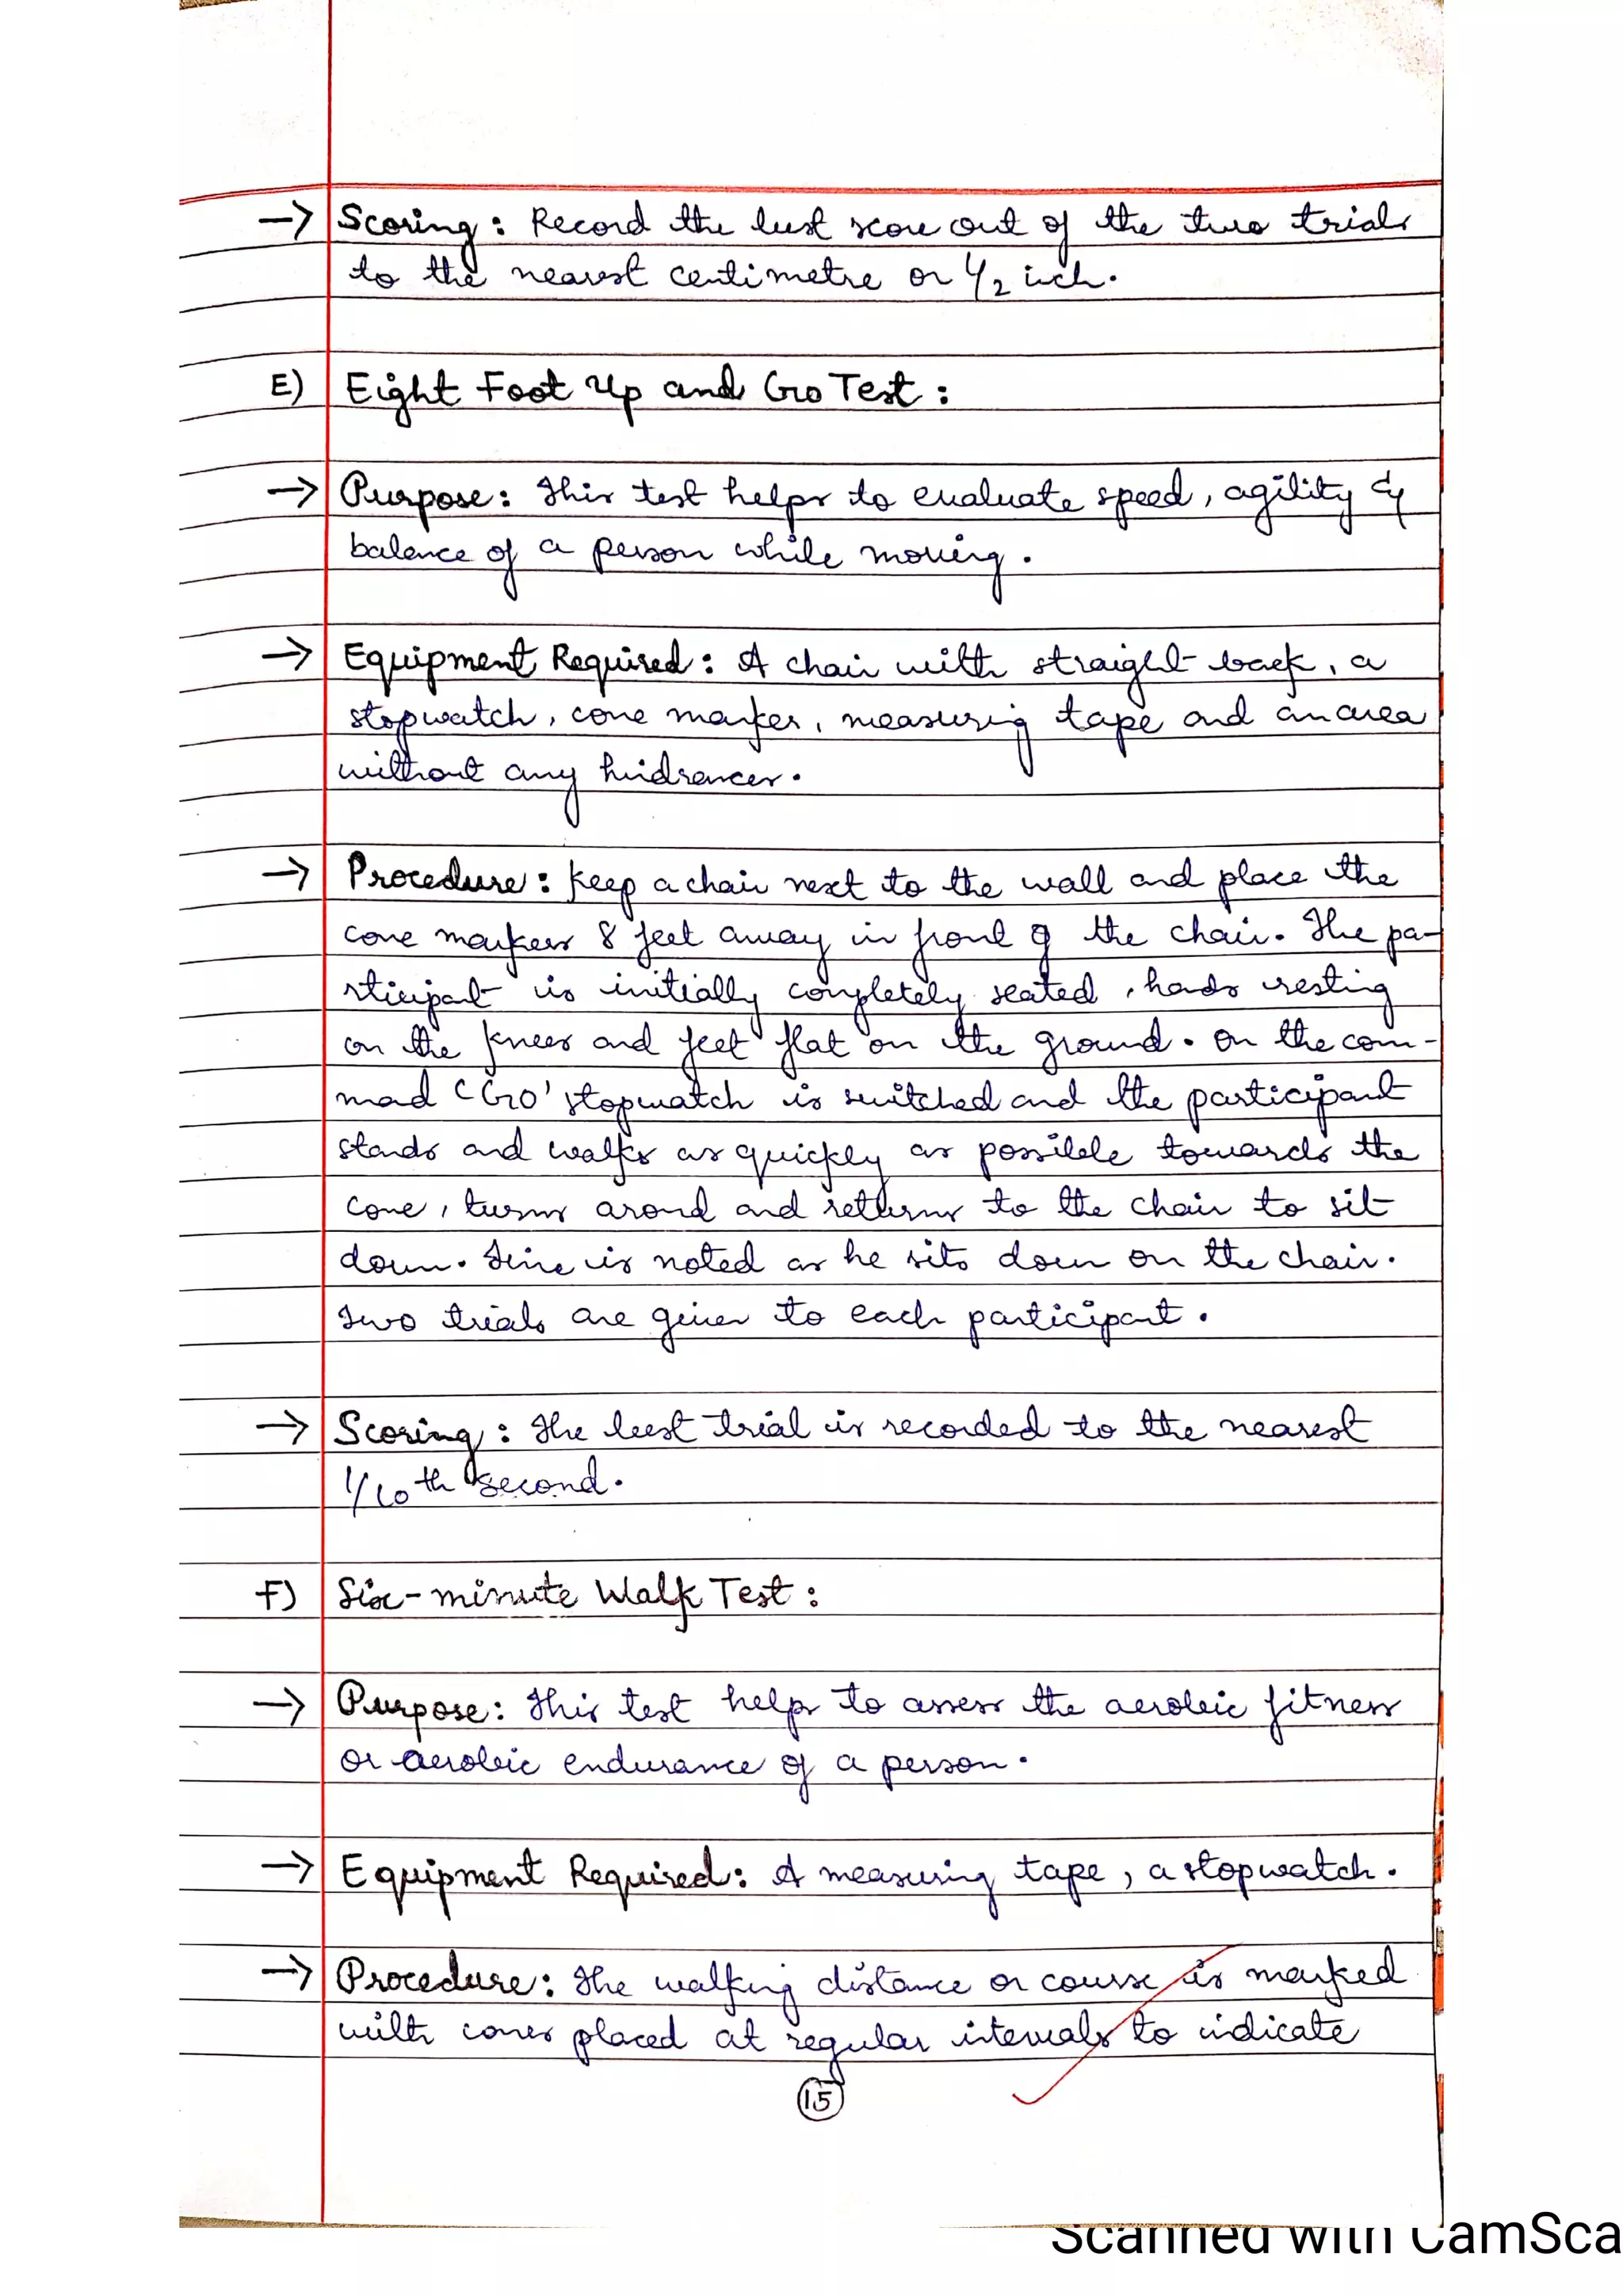 → Scoring: Record the best score out of the two trials
to the nearest centimetre or 1/2 inch.
E) Eight Foot Up and Go Test:
→ Purpose: This test helps to evaluate speed, agility &
balance of a person while moving.
→ Equipment Required: A chair with straight back, a
stopwatch, cone marker, measuring tape and an area
without any hidrances.
→ Procedure: Keep a chair next to the wall and place the
cone markers 8 feet away in front of the chair. The pa-
rticipant is initially completely seated, hands resting
on the knees and feet flat on the ground. On the com-
mad 'GO' stopwatch is switched and the participant
stands and walks as quickly as possible towards the
cone, turns arond and returns to the chair to sit
down. Time is noted as he sits down on the chair.
Two trials are given to each participant.
→ Scoring: The best trial is recorded to the nearest
1/10th second.
F) Six-minute Walk Test:
→ Purpose: This test helps to assess the aerobic fitness
or aerobic endurance of a person.
→ Equipment Required: A measuring tape, a stopwatch.
→ Procedure: The walking distance or course is marked
with cones placed at regular intervals to indicate
15
Scanned with CamSca